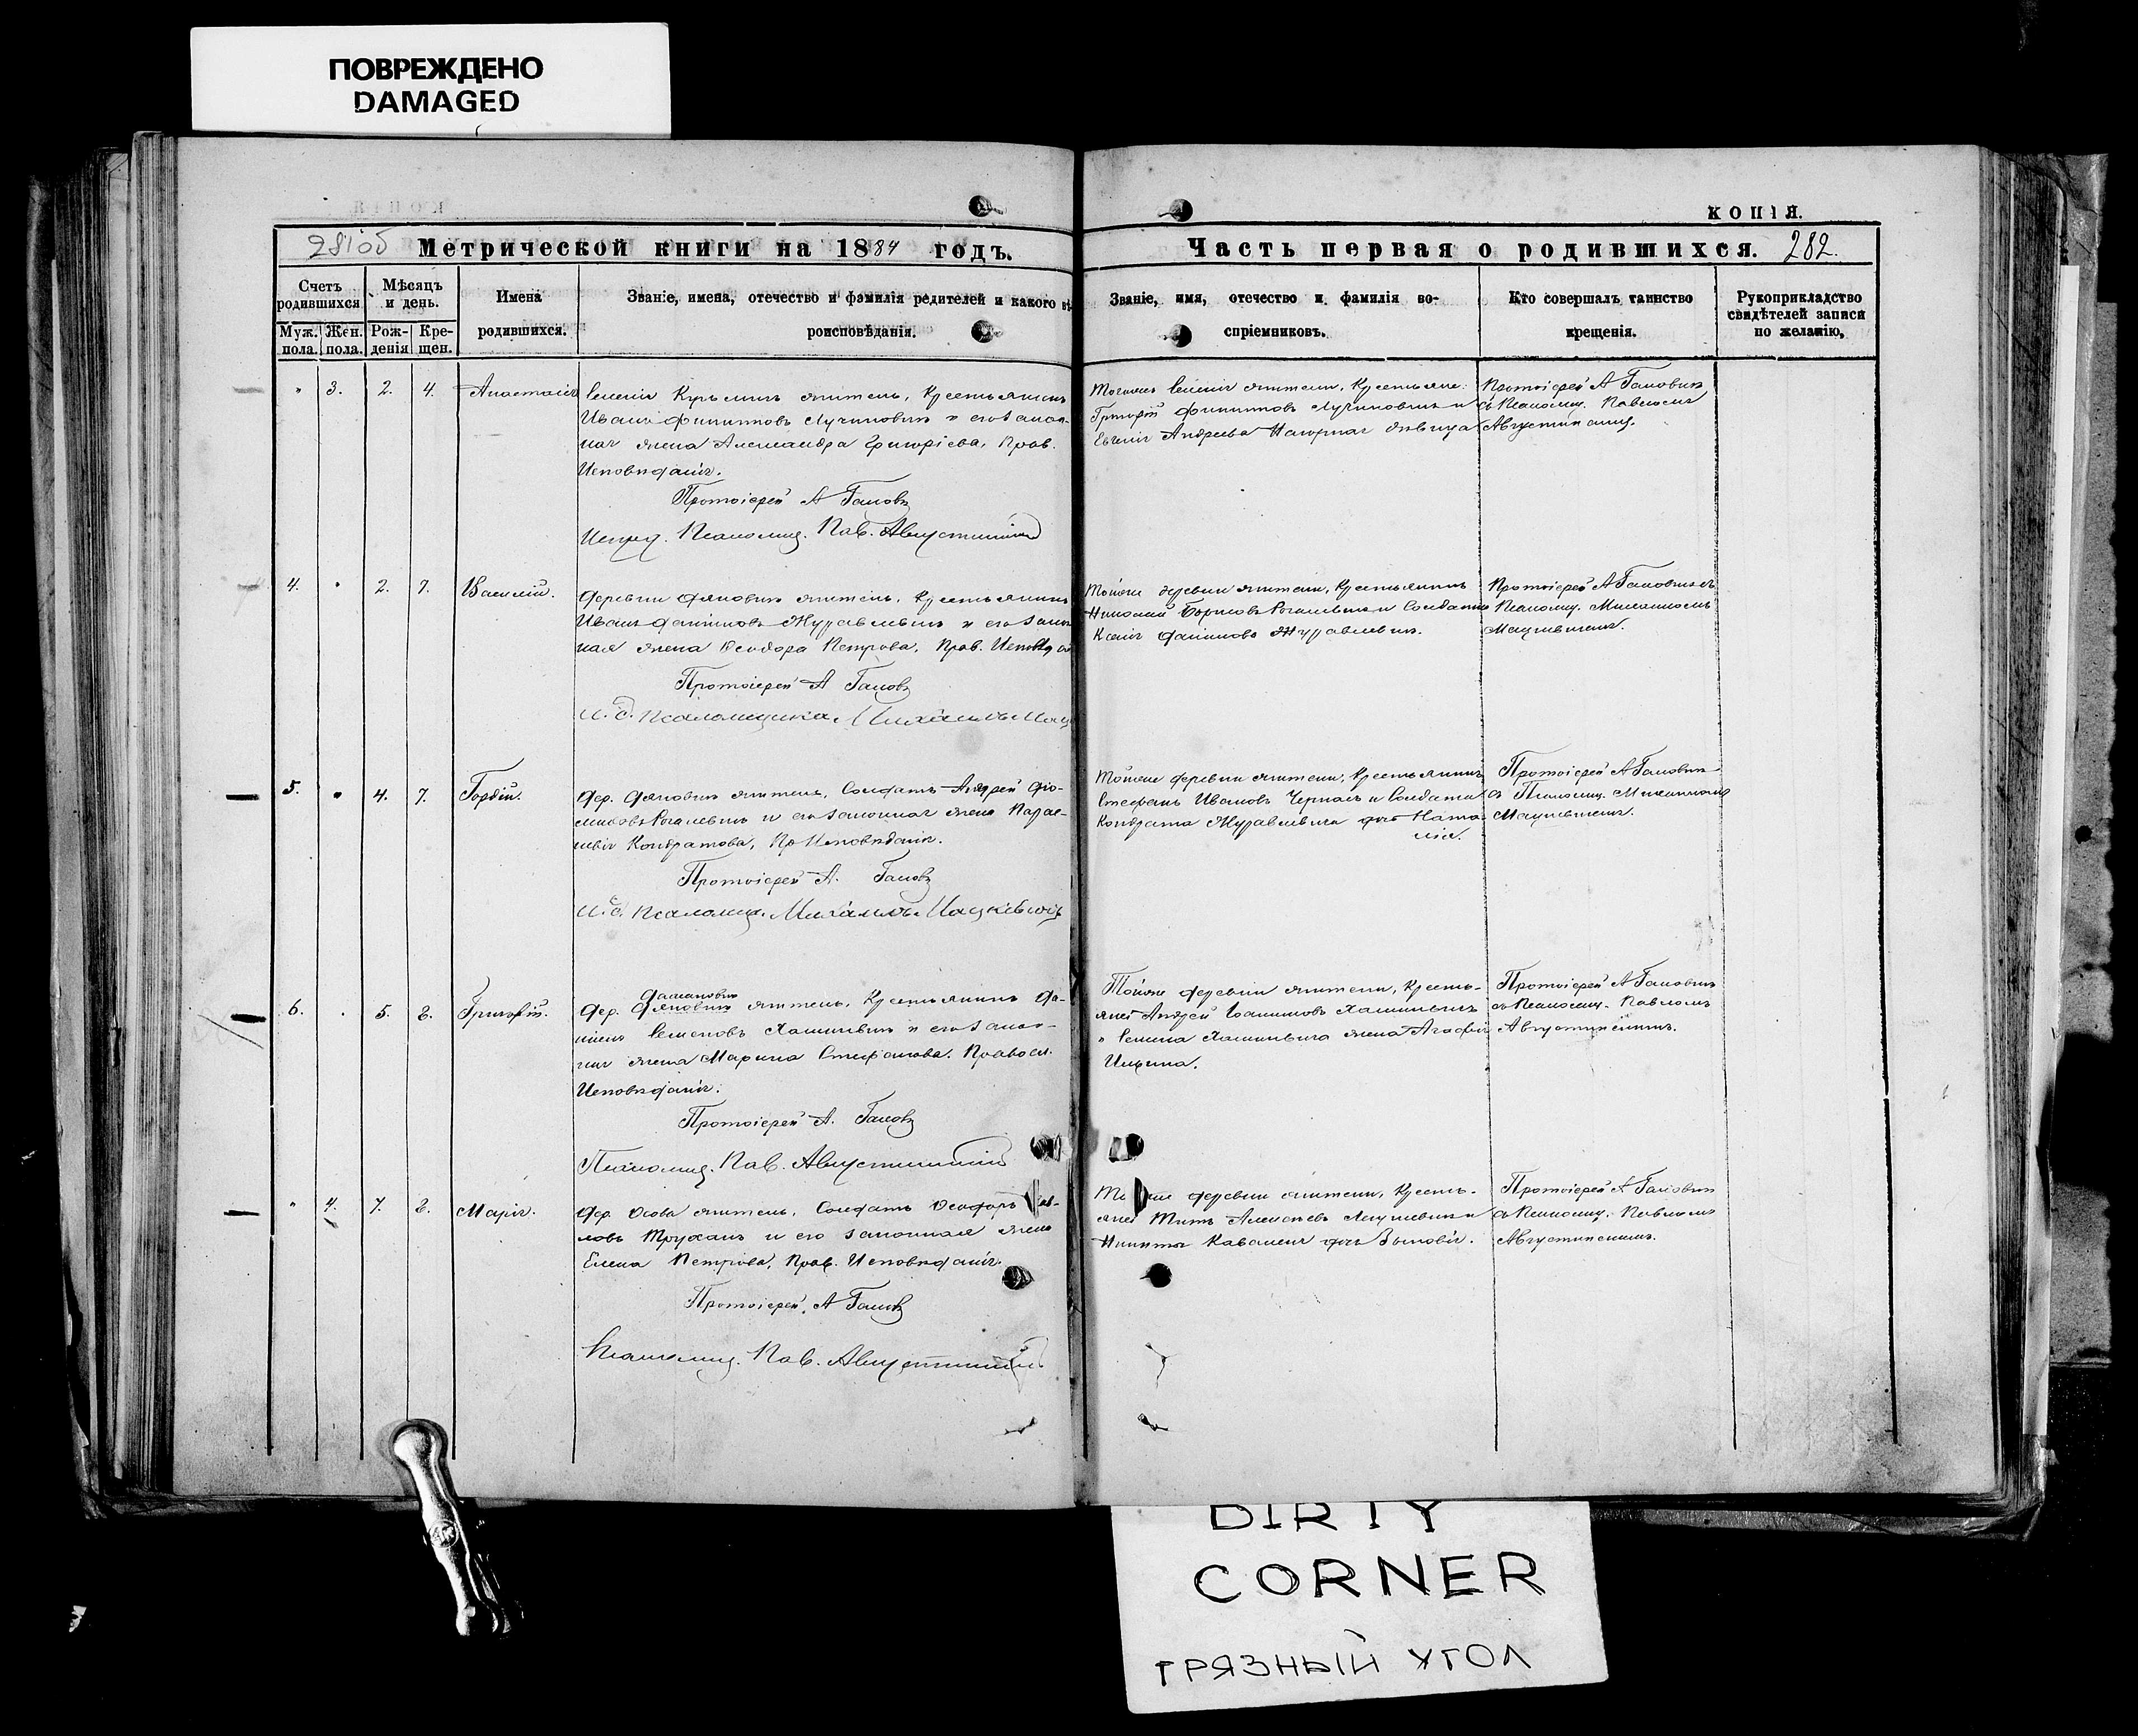 ПОВРЕЖДЕНО
DAMAGED
КОПІЯ.
281об Метрической книги на 1884 годъ.
Часть первая о родившихся. 282.
Счетъ родившихся
Муж. пола.
Жен. пола.
Мѣсяцъ и день.
Рожденія
Крещен.
Имена
родившихся.
Званіе, имена, отечество и фамилія родителей и какого вѣ-
роисповѣданія.
Званіе, имя, отечество и фамилія во-
спріемниковъ.
Кто совершалъ таинство
крещенія.
Рукоприкладство
свидѣтелей записи
по желанію.
" 3. 2. 4. Анастасія
Селенія житель, Крестьянинъ
Иванъ Филипповъ Лучиновичъ и его закон-
ная жена Александра Григорієва, Прав.
Исповѣданія.
Протоіерей А Галовъ
Псаломщ. Пав. Августинскій
Тогоже селенія жители, Крестьяне:
Григорій Филипповъ Лучиновичъ и
Евгенія Андреева дѣвица
Протоіерей А Галовичъ
съ Псаломщ. Павломъ
Августинскимъ.
4. " 2. 7. Василій.
Деревни житель, Крестьянинъ
Иванъ Журавлевичъ и его закон
ная жена Ѳеодора Петрова, Прав. Исповѣд
Протоіерей А Галовъ
И. д. Псаломщика Михаилъ Мац
Тойже деревни жители, Крестьянинъ
Николай Борисовъ Рогалевичъ и Солдатка
Ксенія Журавлевичъ.
Протоіерей А Галовичъ съ
Псаломщ. Михаиломъ
Мацкевичемъ.
5. " 4. 7. Гордій.
Дер. житель, Солдатъ Андрей Фо-
Рогалевичъ и его законная жена Парас-
кевія Кондратова, Пр Исповѣданія.
Протоіерей А. Галовъ
И. д. Псаломщ. Михаилъ Мацкевичъ
Тойже деревни жители, Крестьянинъ
Стефанъ Ивановъ Чернакъ и Солдата
Кондрата Журавлевича дочь Ната-
лія.
Протоіерей А Галовичъ
съ Псаломщ. Михаиломъ
Мацкевичемъ.
6. . 5. 8. Григорій.
Дер. житель, Крестьянинъ Да-
ніилъ Семеновъ Хашкевичъ и его закон-
ная жена Марина Стефанова, Правосл.
Исповѣданія.
Протоіерей А. Галовъ
Псаломщ. Пав. Августинскій
Тойже деревни жители, Кресть-
яне Андрей Іоакимовъ Хашкевичъ
и Семена Хашкевича жена Агафія
Ильина.
Протоіерей А Галовичъ
съ Псаломщ. Павломъ
Августинскимъ.
" 4. 7. 8. Марія.
Дер. Осова житель, Солдатъ Ѳеодоръ
ловъ Труханъ и его законная жена
Елена Петрова, Прав. Исповѣданія.
Протоіерей, А Галовъ
Псаломщ. Пав. Августинскій
деревни жители, Кресть-
яне Титъ Алексѣевъ и
Никиты дочь Зиновія.
Протоіерей А Галовичъ
съ Псаломщ. Павломъ
Августинскимъ.
DIRTY
CORNER
ГРЯЗНЫЙ УГОЛ